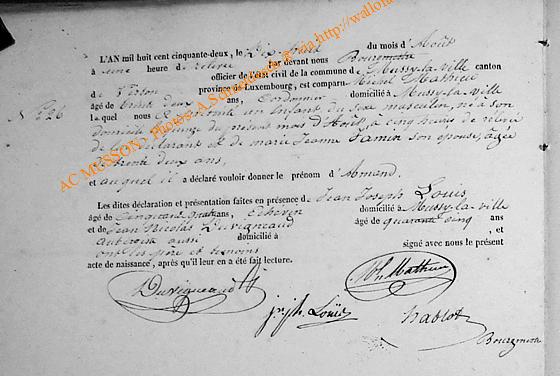 L'AN mil huit cent cinquante-deux, le Dix-huit du mois d'Août
à une heure de relevée par devant nous Bourgmestre
officier de l'état civil de la commune de Mussy-la-ville canton
de Virton province de Luxembourg, est comparu Michel Mathieu
âgé de trente deux ans, Cordonnier domicilié à Mussy-la-ville
N° 226
lequel nous a présenté un Enfant du sexe masculin, né à son
domicile du présent mois d'Août, à cinq heures de relevée
de lui déclarant et de marie Jeanne Jamin son épouse, âgée
de trente deux ans,
et auquel il a déclaré vouloir donner le prénom d'Amand.
Les dites déclaration et présentation faites en présence de Jean Joseph Louis
âgé de Cinquante quatre ans, domicilié à Mussy-la-ville
et de Jean Nicolas Duvigneaud âgé de quarante cinq ans
aussi domicilié à
ont les père et témoins signé avec nous le présent
acte de naissance, après qu'il leur en a été fait lecture.
Duvigneaud Mathieu
jph. Louis hablot
Bourgmestre
AC MUSSON - Photos: A.S. via http://wallonia